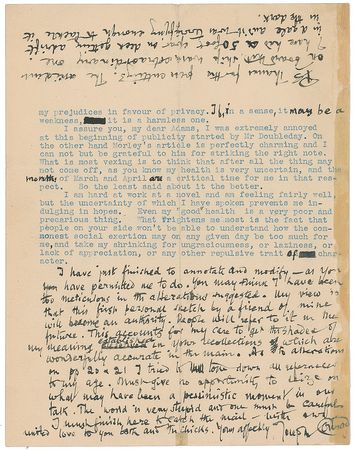 my prejudices in favour of privacy. If, in a sense, it may be a
weakness, it is a harmless one.
I assure you, my dear Adams, I was extremely annoyed
at this beginning of publicity started by Mr Doubleday. On
the other hand Morley's article is perfectly charming and I
can not but be grateful to him for striking right note.
What is most vexing is to think that after all the thing may
not come off, as you know my health is very uncertain, and the
month of March and April are a critical time for me in that res-
pect. So the least said about it the better.
I am hard at work at a novel and am feeling fairly well,
but the uncertainty of which I have spoken prevents me in-
dulging in hopes. Even my "good" health is a very poor and
precarious thing. What frightens me most is the fact that
people on your side won't be able to understand how the com-
monest social exertion may on any given day be too much for
me, and take my shrinking for ungraciousness, or laziness, or
lack of appreciation, or any other repulsive trait of char-
acter.
I have just finished to annotate and modify — as you
you have permitted me to do. You may think I have been
too meticulous in the alterations suggested. My view is
that this first personal sketch by a friend of mine
will become an authority. People will refer to it in the
future. This accounts for my care to get the shades of
my meaning established in your recollections which are
wonderfully accurate in the main. As to alterations
on pp 20 & 21 I tried to tone down all references
to my age. Must give no opportunity to seize on
what may have been a pessimistic moment in our
talk. The world is very stupid and one must be careful.
I must finish here to catch the mail — with our
united love to you both and the chicks. Yours affectly Joseph Conrad
PS Thanks for the
in a gale and
in the dark.